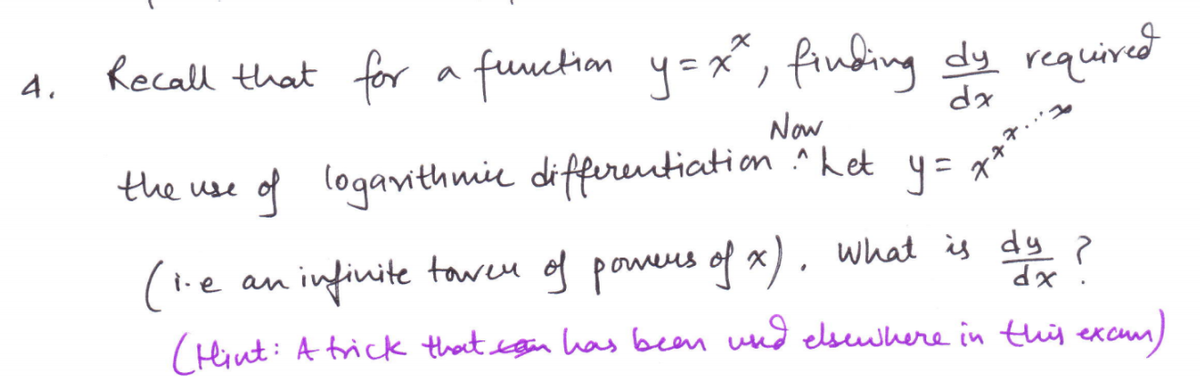 4. Recall that for a function y = x^x, finding dy/dx required
the use of logarithmic differentiation. ^ Now Let y = x^x^x^...^x
(i.e an infinite tower of powers of x). What is dy/dx ?
(Hint: A trick that has been used elsewhere in this exam)